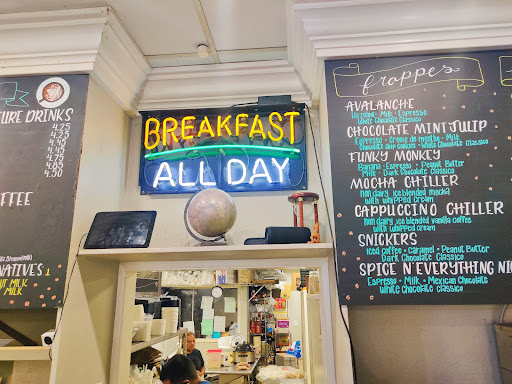 TURE DRINKS
4.25
4.25
4.45
4.45
4.75
4.65
4.50
COFFEE
NATIVES
MILK
MILK
BREAKFAST
ALL DAY
frappes
AVALANCHE
Hazelnut • Milk • Espresso
White Chocolate Classico
CHOCOLATE MINT JULIP
Espresso • Creme de menthe • Milk
Chocolate Chip Cookies • White Chocolate Classico
FUNKY MONKEY
Banana • Espresso • Peanut Butter
Milk • Dark Chocolate Classico
MOCHA CHILLER
non dairy iceblended mocha
with whipped cream
CAPPUCCINO CHILLER
non dairy iceblended vanilla coffee
with whipped cream
SNICKERS
iced coffee • Caramel • Peanut Butter
Dark Chocolate Classico
SPICE N' EVERYTHING NI
Espresso • Milk • Mexican Chocolate
White Chocolate Classico